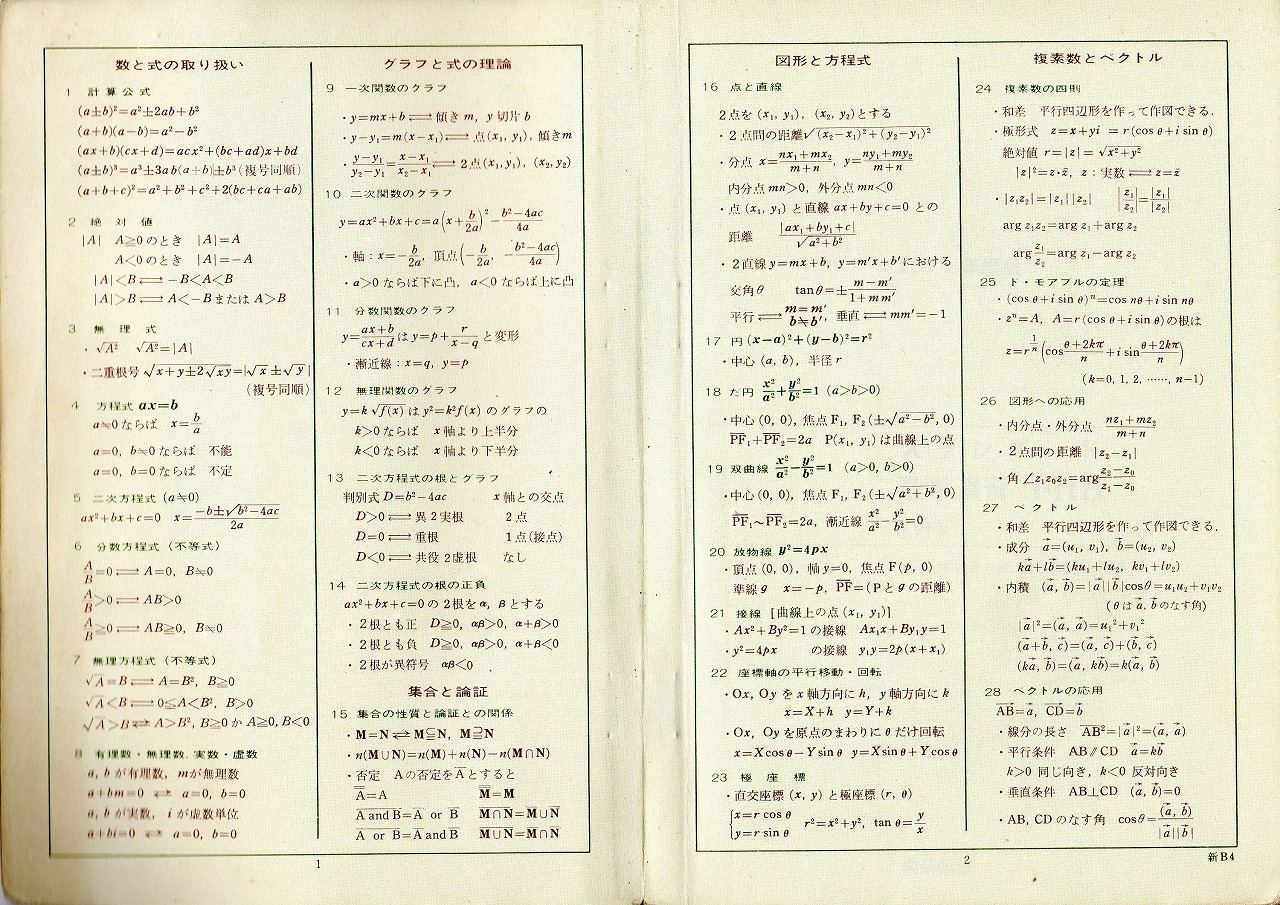 数と式の取り扱い
1 計算公式
(a±b)²=a²±2ab+b²
(a+b)(a−b)=a²−b²
(ax+b)(cx+d)=acx²+(bc+ad)x+bd
(a±b)³=a³±3ab(a+b)±b³(複号同順)
(a+b+c)²=a²+b²+c²+2(bc+ca+ab)
2 絶対値
|A| A≧0のとき |A|=A
A<0のとき |A|=−A
|A|<B⇄−B<A<B
|A|>B⇄A<−BまたはA>B
3 無理式
・√A² √A²=|A|
・二重根号√x+y±2√xy=|√x±√y|
(複号同順)
4 方程式 ax=b
a≒0ならば x=b/a
a=0, b≒0ならば 不能
a=0, b=0ならば 不定
5 二次方程式(a≒0)
ax²+bx+c=0 x=−b±√b²−4ac/2a
6 分数方程式(不等式)
A/B=0⇄A=0, B≒0
A/B>0⇄AB>0
A/B≧0⇄AB≧0, B≒0
7 無理方程式(不等式)
√A=B⇄A=B², B≧0
√A<B⇄0≦A<B², B>0
√A>B⇄A>B², B≧0かA≧0, B<0
8 有理数・無理数, 実数・虚数
a, bが有理数, mが無理数
a+bm=0 ⇄ a=0, b=0
a, bが実数, iが虚数単位
a+bi=0 ⇄ a=0, b=0
グラフと式の理論
9 一次関数のグラフ
・y=mx+b⇄傾きm, y切片b
・y−y₁=m(x−x₁)⇄点(x₁, y₁), 傾きm
・y−y₁/y₂−y₁=x−x₁/x₂−x₁⇄2点(x₁, y₁), (x₂, y₂)
10 二次関数のグラフ
y=ax²+bx+c=a(x+b/2a)²−b²−4ac/4a
・軸:x=−b/2a, 頂点(−b/2a, −b²−4ac/4a)
・a>0ならば下に凸, a<0ならば上に凸
11 分数関数のグラフ
y=ax+b/cx+dはy=p+r/x−qと変形
・漸近線:x=q, y=p
12 無理関数のグラフ
y=k√f(x)はy²=k²f(x)のグラフの
k>0ならば x軸より上半分
k<0ならば x軸より下半分
13 二次方程式の根とグラフ
判別式D=b²−4ac x軸との交点
D>0⇄異2実根 2点
D=0⇄重根 1点(接点)
D<0⇄共役2虚根 なし
14 二次方程式の根の正負
ax²+bx+c=0の2根をα, βとする
・2根とも正 D≧0, αβ>0, α+β>0
・2根とも負 D≧0, αβ>0, α+β<0
・2根が異符号 αβ<0
集合と論証
15 集合の性質と論証との関係
・M=N⇄M⊆N, M⊇N
・n(M∪N)=n(M)+n(N)−n(M∩N)
・否定 Aの否定をA̅とすると
A̿=A M̿=M
A and B‾=A̅ or B̅ M∩N‾=M̅∪N̅
A or B‾=A̅ and B̅ M∪N‾=M̅∩N̅
1
図形と方程式
16 点と直線
2点を(x₁, y₁), (x₂, y₂)とする
・2点間の距離√(x₂−x₁)²+(y₂−y₁)²
・分点 x=nx₁+mx₂/m+n, y=ny₁+my₂/m+n
内分点mn>0, 外分点mn<0
・点(x₁, y₁)と直線ax+by+c=0との
距離 |ax₁+by₁+c|/√a²+b²
・2直線y=mx+b, y=m′x+b′における
交角θ tanθ=±m−m′/1+mm′
平行⇄m=m′ b≒b′, 垂直⇄mm′=−1
17 円(x−a)²+(y−b)²=r²
・中心(a, b), 半径r
18 だ円 x²/a²+y²/b²=1 (a>b>0)
・中心(0, 0), 焦点F₁, F₂(±√a²−b², 0)
P̅F̅₁+P̅F̅₂=2a P(x₁, y₁)は曲線上の点
19 双曲線 x²/a²−y²/b²=1 (a>0, b>0)
・中心(0, 0), 焦点F₁, F₂(±√a²+b², 0)
P̅F̅₁~P̅F̅₂=2a, 漸近線 x²/a²−y²/b²=0
20 放物線 y²=4px
・頂点(0, 0), 軸y=0, 焦点F(p, 0)
準線g x=−p, P̅F̅=(Pとgの距離)
21 接線 [曲線上の点(x₁, y₁)]
・Ax²+By²=1の接線 Ax₁x+By₁y=1
・y²=4px の接線 y₁y=2p(x+x₁)
22 座標軸の平行移動・回転
・Ox, Oyをx軸方向にh, y軸方向にk
x=X+h y=Y+k
・Ox, Oyを原点のまわりにθだけ回転
x=Xcosθ−Ysinθ y=Xsinθ+Ycosθ
23 極座標
・直交座標(x, y)と極座標(r, θ)
{x=r cosθ
y=r sinθ r²=x²+y², tanθ=y/x
複素数とベクトル
24 複素数の四則
・和差 平行四辺形を作って作図できる.
・極形式 z=x+yi =r(cosθ+i sinθ)
絶対値 r=|z|=√x²+y²
|z|²=z・z̄, z:実数⇄z=z̄
・|z₁z₂|=|z₁||z₂| |z₁/z₂|=|z₁|/|z₂|
arg z₁z₂=arg z₁+arg z₂
arg z₁/z₂=arg z₁−arg z₂
25 ド・モアブルの定理
・(cosθ+i sinθ)ⁿ=cos nθ+i sin nθ
・zⁿ=A, A=r(cosθ+i sinθ)の根は
z=r^1/n(cos θ+2kπ/n+i sin θ+2kπ/n)
(k=0, 1, 2, ……, n−1)
26 図形への応用
・内分点・外分点 nz₁+mz₂/m+n
・2点間の距離 |z₂−z₁|
・角∠z₁z₀z₂=arg z₂−z₀/z₁−z₀
27 ベクトル
・和差 平行四辺形を作って作図できる.
・成分 a⃗=(u₁, v₁), b⃗=(u₂, v₂)
ka⃗+lb⃗=(ku₁+lu₂, kv₁+lv₂)
・内積 (a⃗, b⃗)=|a⃗||b⃗|cosθ=u₁u₂+v₁v₂
(θはa⃗, b⃗のなす角)
|a⃗|²=(a⃗, a⃗)=u₁²+v₁²
(a⃗+b⃗, c⃗)=(a⃗, c⃗)+(b⃗, c⃗)
(ka⃗, b⃗)=(a⃗, kb⃗)=k(a⃗, b⃗)
28 ベクトルの応用
A⃗B⃗=a⃗, C⃗D⃗=b⃗
・線分の長さ A̅B̅²=|a⃗|²=(a⃗, a⃗)
・平行条件 AB∥CD a⃗=kb⃗
k>0 同じ向き, k<0 反対向き
・垂直条件 AB⊥CD (a⃗, b⃗)=0
・AB, CDのなす角 cosθ=(a⃗, b⃗)/|a⃗||b⃗|
2
新B4